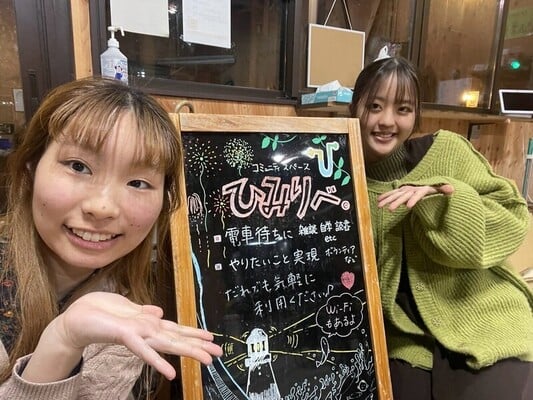 コミュニティスペース
ひみりべ
電車待ちに 雑談 自学 読書
etc
やりたいこと実現 ボランティア
など
だれでも気軽に
利用ください♪
Wi-Fi
もあるよ